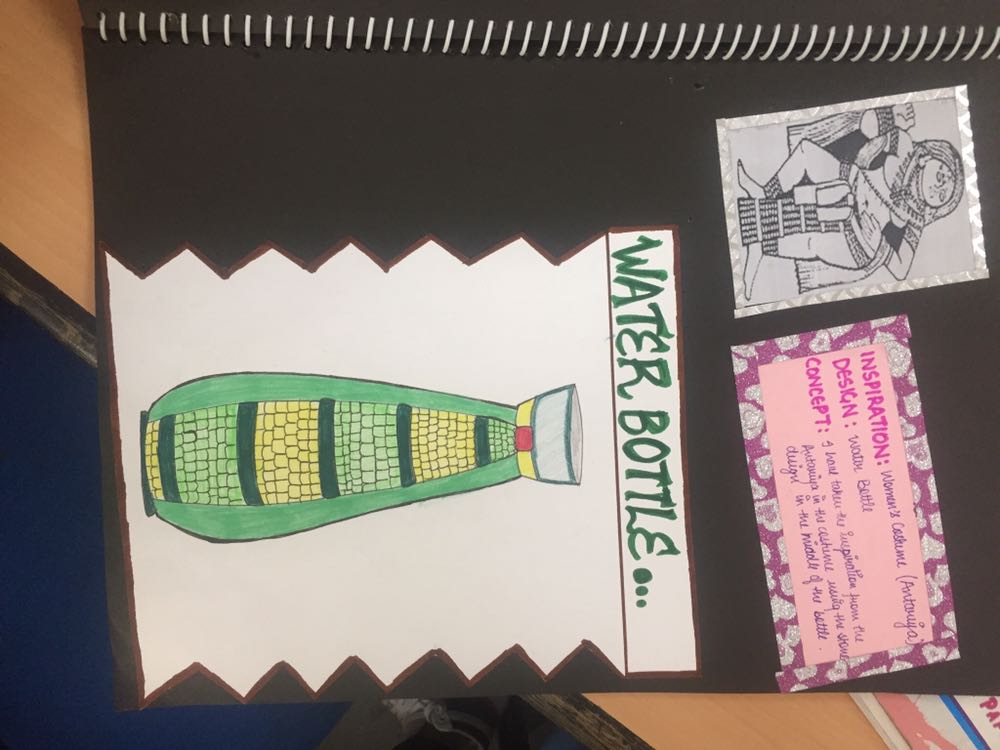 WATER BOTTLE...
INSPIRATION: Women's Costume (Antariya)
DESIGN: Water Bottle
CONCEPT: I have taken the inspiration from the
Antariya in the costume using the stone
design in the middle of the bottle.